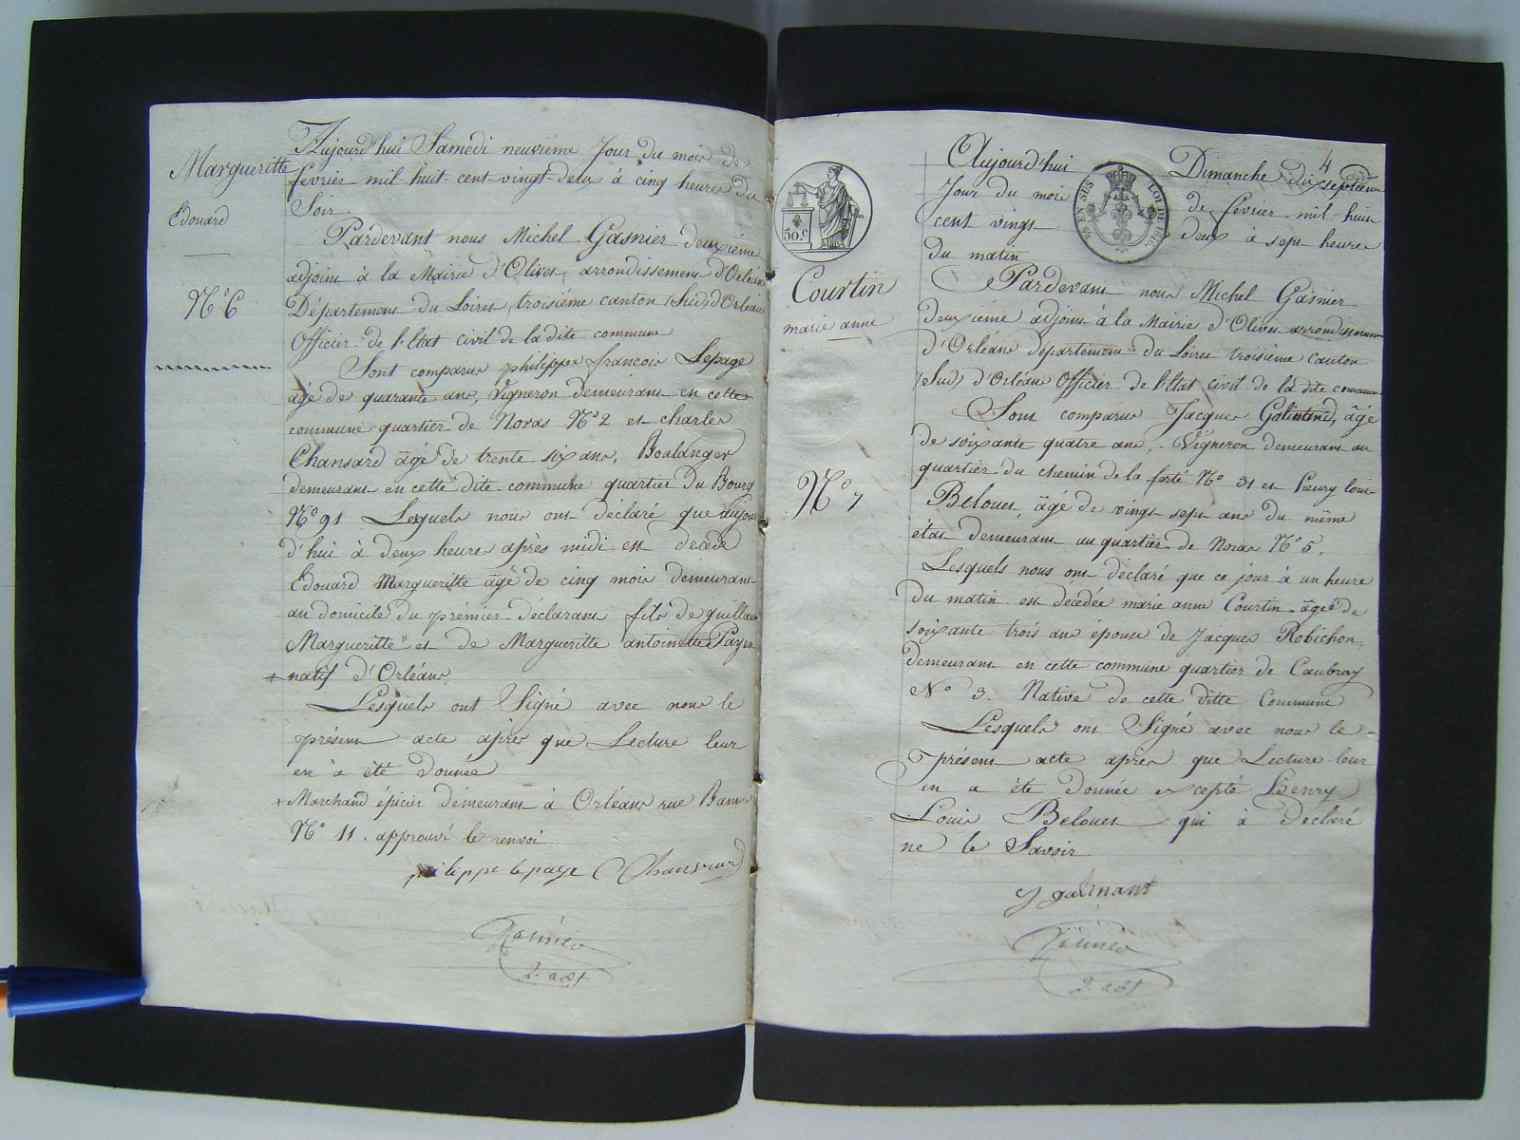 Margueritte
Edouard
N° 6
Aujourd'hui Samedi neuvieme Jour du mois de
fevrier mil huit cent vingt deux à cinq heures du
Soir
Pardevant nous Michel Gasnier deuxieme
adjoint à la Mairie d'Olivet, arrondissement d'Orléans
Département du Loiret, troisiéme canton (Sud) d'Orléans
Officier de l'Etat civil de la dite commune
Sont comparus philippe françois Lepage
âgé de quarante ans, Vigneron demeurant en cette
commune quartier de Noras N° 2 et charles
Chansard âgé de trente six ans, Boulanger
demeurant en cette dite commune quartier du Bourg
N° 91 Lesquels nous ont déclaré que aujour
d'hui à deux heures après midi est décédé
Edouard Margueritte âgé de cinq mois demeurant
au domicile du prémier déclarant fils de guillaume
Margueritte + et de Margueritte antoinette
natif d'Orléans
Lesquels ont Signé avec nous le
présent acte après que Lecture leur
en a été donnée
+ Marchand épicier demeurant à Orléans rue
N° 11. approuvé le renvoi
philippe lepage Chansard
Gasnier
2. adjt
4
50 c
Courtin
marie anne
N° 7
Aujourd'hui Dimanche dix septieme
Jour du mois de fevrier mil huit
cent vingt deux à sept heures
du matin
Pardevant nous Michel Gasnier
deuxieme adjoint à la Mairie d'Olivet arrondissement
d'Orléans département du Loiret troisiéme canton
(Sud) d'Orléans Officier de l'Etat civil de la dite commune
Sont comparus Jacques âgé
de soixante quatre ans, Vigneron demeurant au
quartier du chemin de la ferté N° 31 et henry louis
Belouet, âgé de vingt sept ans du même
état demeurant au quartier de Noras N° 5.
Lesquels nous ont déclaré que ce jour à un heure
du matin est décédée marie anne Courtin âgée de
soixante trois ans épouse de Jacques Robichon
demeurant en cette commune quartier de Caubray
N° 3. Native de cette ditte Commune
Lesquels ont Signé avec nous le
présent acte après que Lecture leur
en a été donnée excepté Henry
Louis Belouet qui a déclaré
ne le Savoir
J galinant
Gasnier
2. adjt